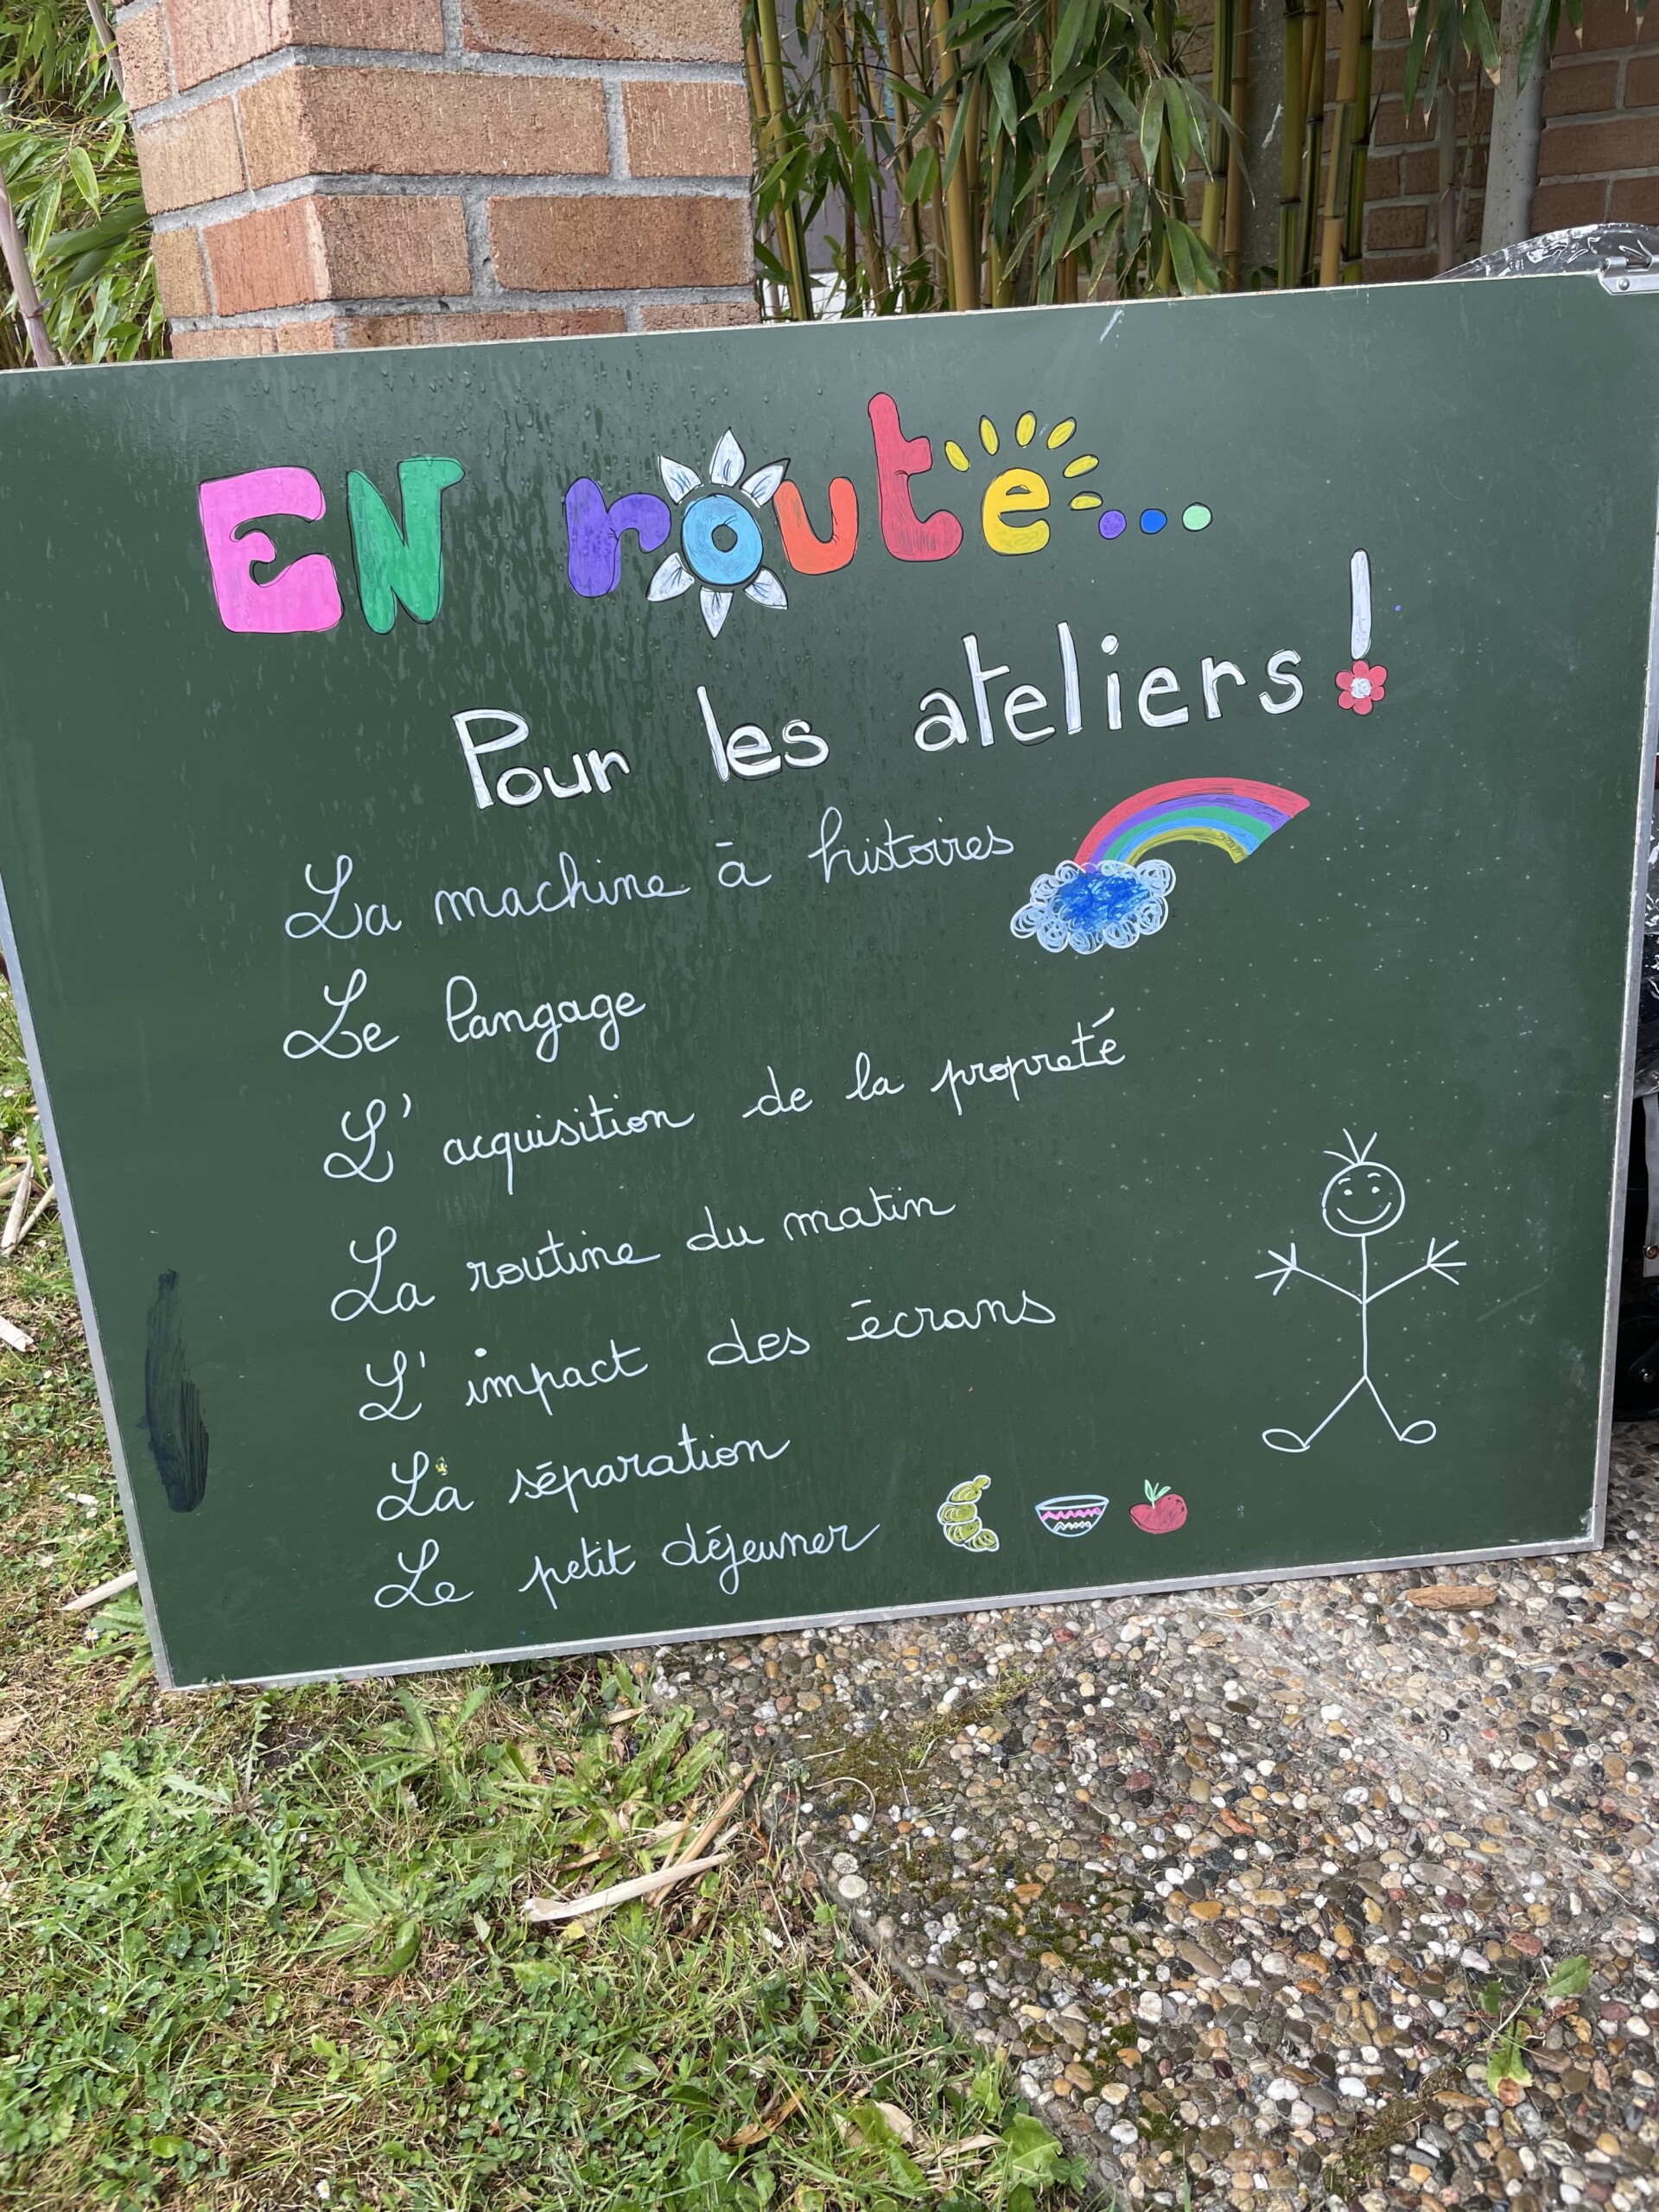 EN route...
Pour les ateliers !
La machine à histoires
Le langage
L'acquisition de la propreté
La routine du matin
L'impact des écrans
La séparation
Le petit déjeuner